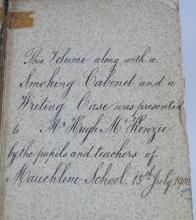 This Volume along with a
Smoking Cabinet and a
Writing Case was presented
to Mr Hugh McKenzie
by the pupils and teachers of
Mauchline School, 13th July